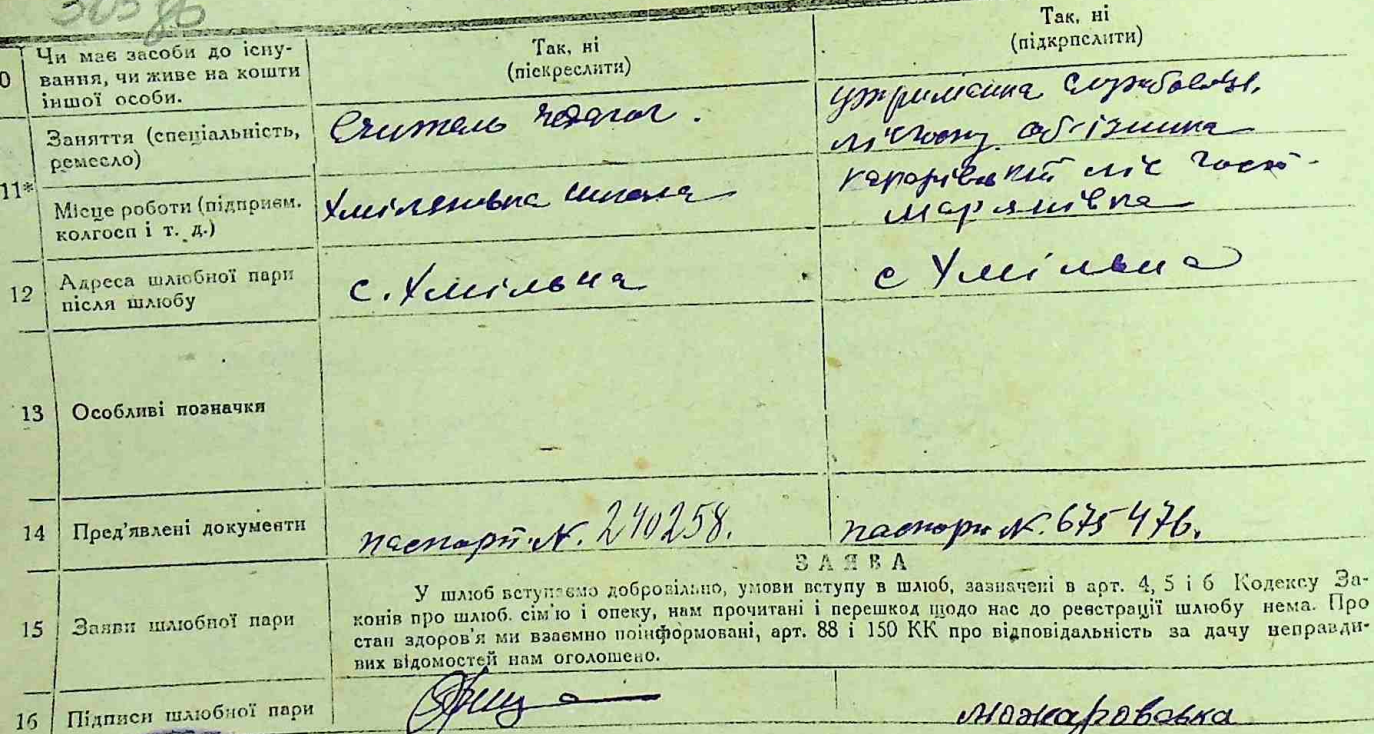 0 Чи має засоби до існу-
вання, чи живе на кошти
іншої особи.
Так, ні
(піскреслити)
Так, ні
(підкрпслити)
11* Заняття (спеціальність,
ремесло)
Считель педагог.
утриманка службовця,
об-їзчика
Місце роботи (підприєм.
колгосп і т. д.)
школа
ліс
Мар'янівка
12 Адреса шлюбної пари
після шлюбу
с. Хмільна
с Хмільна
13 Особливі позначки
14 Пред'явлені документи
паспорт. №. 240258.
паспорт №. 675476.
ЗАЯВА
15 Заяви шлюбної пари
У шлюб вступаємо добровільно, умови вступу в шлюб, зазначені в арт. 4, 5 і 6 Кодексу За-
конів про шлюб. сім'ю і опеку, нам прочитані і перешкод щодо нас до реєстрації шлюбу нема. Про
стан здоров'я ми взаємно поінформовані, арт. 88 і 150 КК про відповідальність за дачу неправди-
вих відомостей нам оголошено.
16 Підписи шлюбної пари
Можаровська